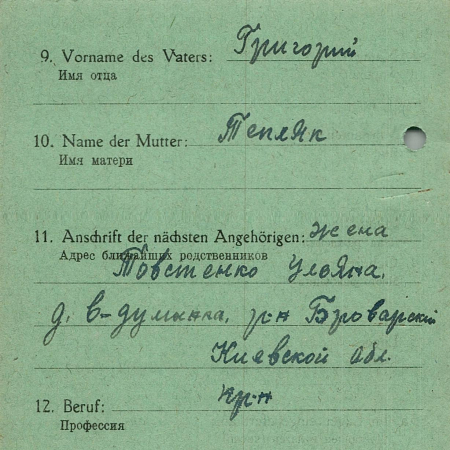 9. Vorname des Vaters: Григорий
Имя отца
10. Name der Mutter: Тепляк
Имя матери
11. Anschrift der nächsten Angehörigen: жена
Адрес ближайших родственников
Товстенко Ульяна,
д. В-думынка, р-н Броварский
Киевской обл.
12. Beruf: кр-н
Профессия